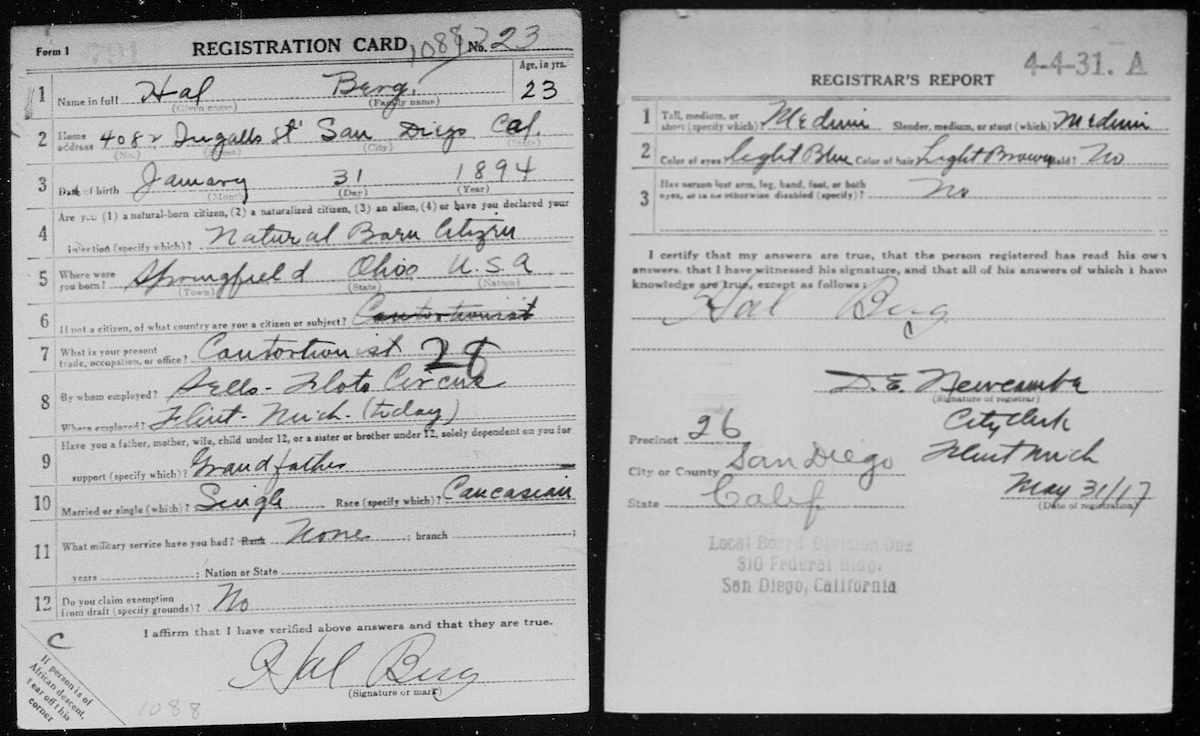 Form 1
REGISTRATION CARD 1088 No. 23
Age, in yrs.
1 Name in full Hal Berg 23
(Given name) (Family name)
2 Home address 408 Ingalls St San Diego Cal.
(No.) (Street) (City) (State)
3 Date of birth January 31 1894
(Month) (Day) (Year)
Are you (1) a natural-born citizen, (2) a naturalized citizen, (3) an alien, (4) or have you declared your
4 intention (specify which)? Natural Born Citizen
5 Where were you born? Springfield Ohio U.S.A
(Town) (State) (Nation)
6 If not a citizen, of what country are you a citizen or subject? Contortionist
7 What is your present trade, occupation, or office? Contortionist 28
8 By whom employed? Sells-Floto Circus
Where employed? Flint-Mich-(today)
Have you a father, mother, wife, child under 12, or a sister or brother under 12, solely dependent on you for
9 support (specify which)? Grandfather
10 Married or single (which)? Single Race (specify which)? Caucasian
11 What military service have you had? Rank None ; branch ;
years ; Nation or State
12 Do you claim exemption from draft (specify grounds)? No
I affirm that I have verified above answers and that they are true.
C
Hal Berg
(Signature or mark)
If person is of
African descent,
tear off this
corner
1088
4-4-31. A
REGISTRAR'S REPORT
1 Tall, medium, or short (specify which)? Medium Slender, medium, or stout (which)? Medium
2 Color of eyes Light Blue Color of hair Light Brown Bald? No
3 Has person lost arm, leg, hand, foot, or both eyes, or is he otherwise disabled (specify)? No
I certify that my answers are true, that the person registered has read his own
answers, that I have witnessed his signature, and that all of his answers of which I have
knowledge are true, except as follows:
Hal Berg
D. E. Newcombe
(Signature of registrar)
City Clerk
Precinct 26
Flint Mich
City or County San Diego
State Calif.
May 31/17
(Date of registration)
Local Board Division One
310 Federal Bldg.
San Diego, California